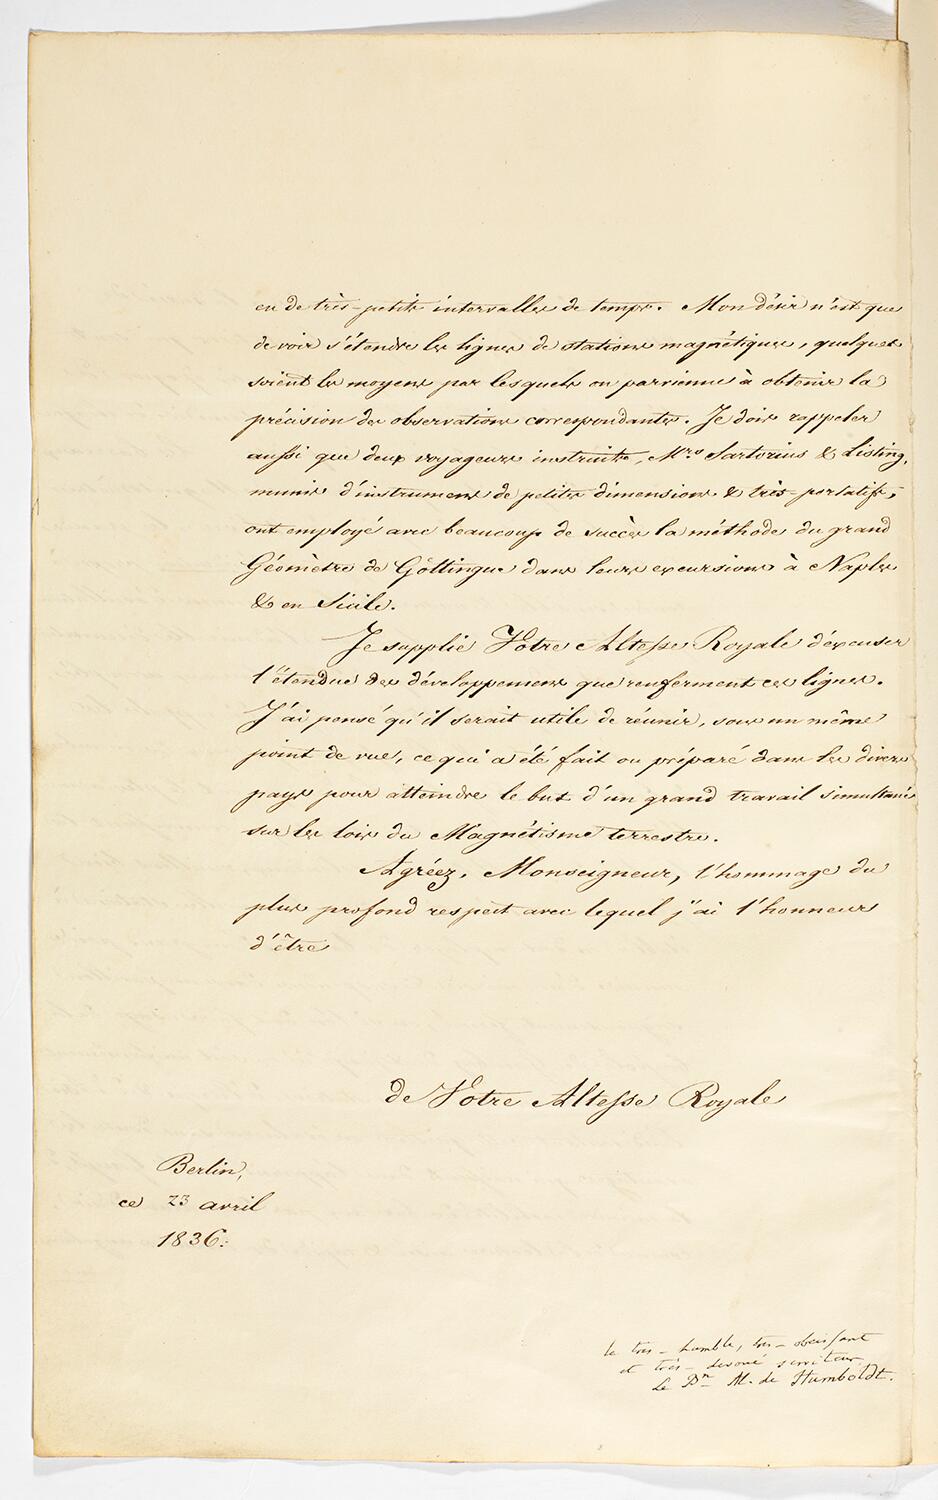 en de très-petits intervalles de temps. Mon désir n'est que
de voir s'étendre les lignes de stations magnétiques, quelques
soient les moyens par lesquels on parvienne à obtenir la
précision des observations correspondantes. Je dois rappeler
aussi que deux voyageurs instruits, Mrs Sartorius & Listing,
munis d'instrumens de petites dimensions & très-portatifs,
ont employé avec beaucoup de succès la méthode du grand
Géomètre de Göttingue dans leurs excursions à Naples
& en Sicile.
Je supplie Votre Altesse Royale d'excuser
l'étendue des développemens que renferment ces lignes.
J'ai pensé qu'il serait utile de réunir, sous un même
point de vue, ce qui a été fait ou préparé dans les divers
pays pour atteindre le but d'un grand travail simultané
sur les loix du Magnétisme terrestre.
Agréez, Monseigneur, l'hommage du
plus profond respect avec lequel j'ai l'honneur
d'être
de Votre Altesse Royale
Berlin,
ce 23 avril
1836.
le très-humble, très-obeissant
et très-devoué serviteur
Le Bn Al. de Humboldt.